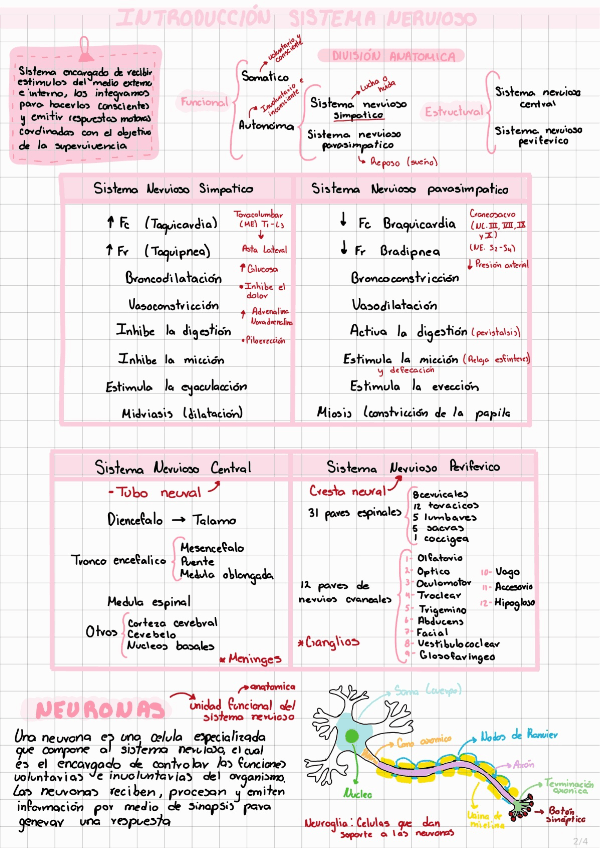 INTRODUCCIÓN SISTEMA NERVIOSO
Sistema encargado de recibir
estimulos del medio externo
e interno, los integramos
para hacerlos conscientes
y emitir respuestas motoras
cordinadas con el objetivo
de la supervivencia
DIVISIÓN ANATOMICA
Funcional
Somatico
voluntario y
consciente
Autonoma
Involuntario e
inconsciente
Sistema nervioso
simpatico
Lucha o
huida
Sistema nervioso
parasimpatico
Reposo (sueño)
Estructural
Sistema nervioso
central
Sistema nervioso
periferico
Sistema Nervioso Simpatico
↑ Fc (Taquicardia)
↑ Fr (Taquipnea)
Broncodilatación
Vasoconstricción
Inhibe la digestión
Inhibe la micción
Estimula la eyaculacción
Midriasis (dilatación)
Toracolumbar
(ME) T1-L3
Asta Lateral
↑ Glucosa
* Inhibe el
dolor
↑ Adrenalina
Noradrenalina
• Piloerección
Sistema Nervioso parasimpatico
↓ Fc Braquicardia
↓ Fr Bradipnea
Broncoconstricción
Vasodilatación
Activa la digestión (peristalsis)
Estimula la micción (Relaja esfinteres)
y defecación
Estimula la erección
Miosis (constricción de la papila
Craneosacro
(NC. III, VII, IX
y X)
(NE. S2-S4)
↓ Presión arterial
Sistema Nervioso Central
- Tubo neural
Diencefalo → Talamo
Tronco encefalico
Mesencefalo
Puente
Medula oblongada
Medula espinal
Otros
Corteza cerebral
Cerebelo
Nucleos basales
* Meninges
Sistema Nervioso Periferico
Cresta neural
31 pares espinales
8 cervicales
12 toracicos
5 lumbares
5 sacras
1 coccigea
12 pares de
nervios craneales
1- Olfatorio
2- Optico
3- Oculomotor
4- Troclear
5- Trigemino
6- Abducens
7- Facial
8- Vestibulococlear
9- Glosofaringeo
10- Vago
11- Accesorio
12- Hipogloso
* Ganglios
NEURONAS
anatomica
unidad funcional del
sistema nervioso
Una neurona es una celula especializada
que compone al sistema nervioso, el cual
es el encargado de controlar las funciones
voluntarias e involuntarias del organismo.
Las neuronas reciben, procesan y emiten
información por medio de sinapsis para
generar una respuesta
Soma (cuerpo)
Cono axonico
Nodos de Ranvier
Axón
Nucleo
Terminación
axonica
Vaina de
mielina
Botón
sináptico
Neuroglia: Celulas que dan
soporte a las neuronas
2/4